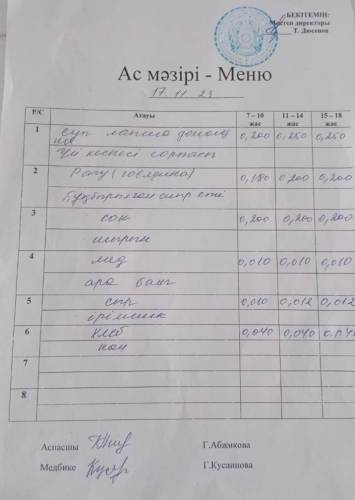 БЕКІТЕМІН:
Мектеп директоры
Т. Дюсенов
Ас мәзірі - Меню
17. 11 23
Р/С Атауы 7 – 10 жас 11 – 14 жас 15 – 18 жас
1 Суп лапша домаш 0,200 0,250 0,250
ний
Үй кеспесі сорпасы
2 Рагу (говядина) 0,180 0,200 0,200
Бұқтырылған сиыр еті
3 сок 0,200 0,200 0,200
шырын
4 мед 0,010 0,010 0,010
ара балы
5 сыр 0,010 0,012 0,012
ірімшік
6 хлеб 0,040 0,040 0,040
нан
7
8
Аспасшы Г.Абжикова
Медбике Г.Кусаинова